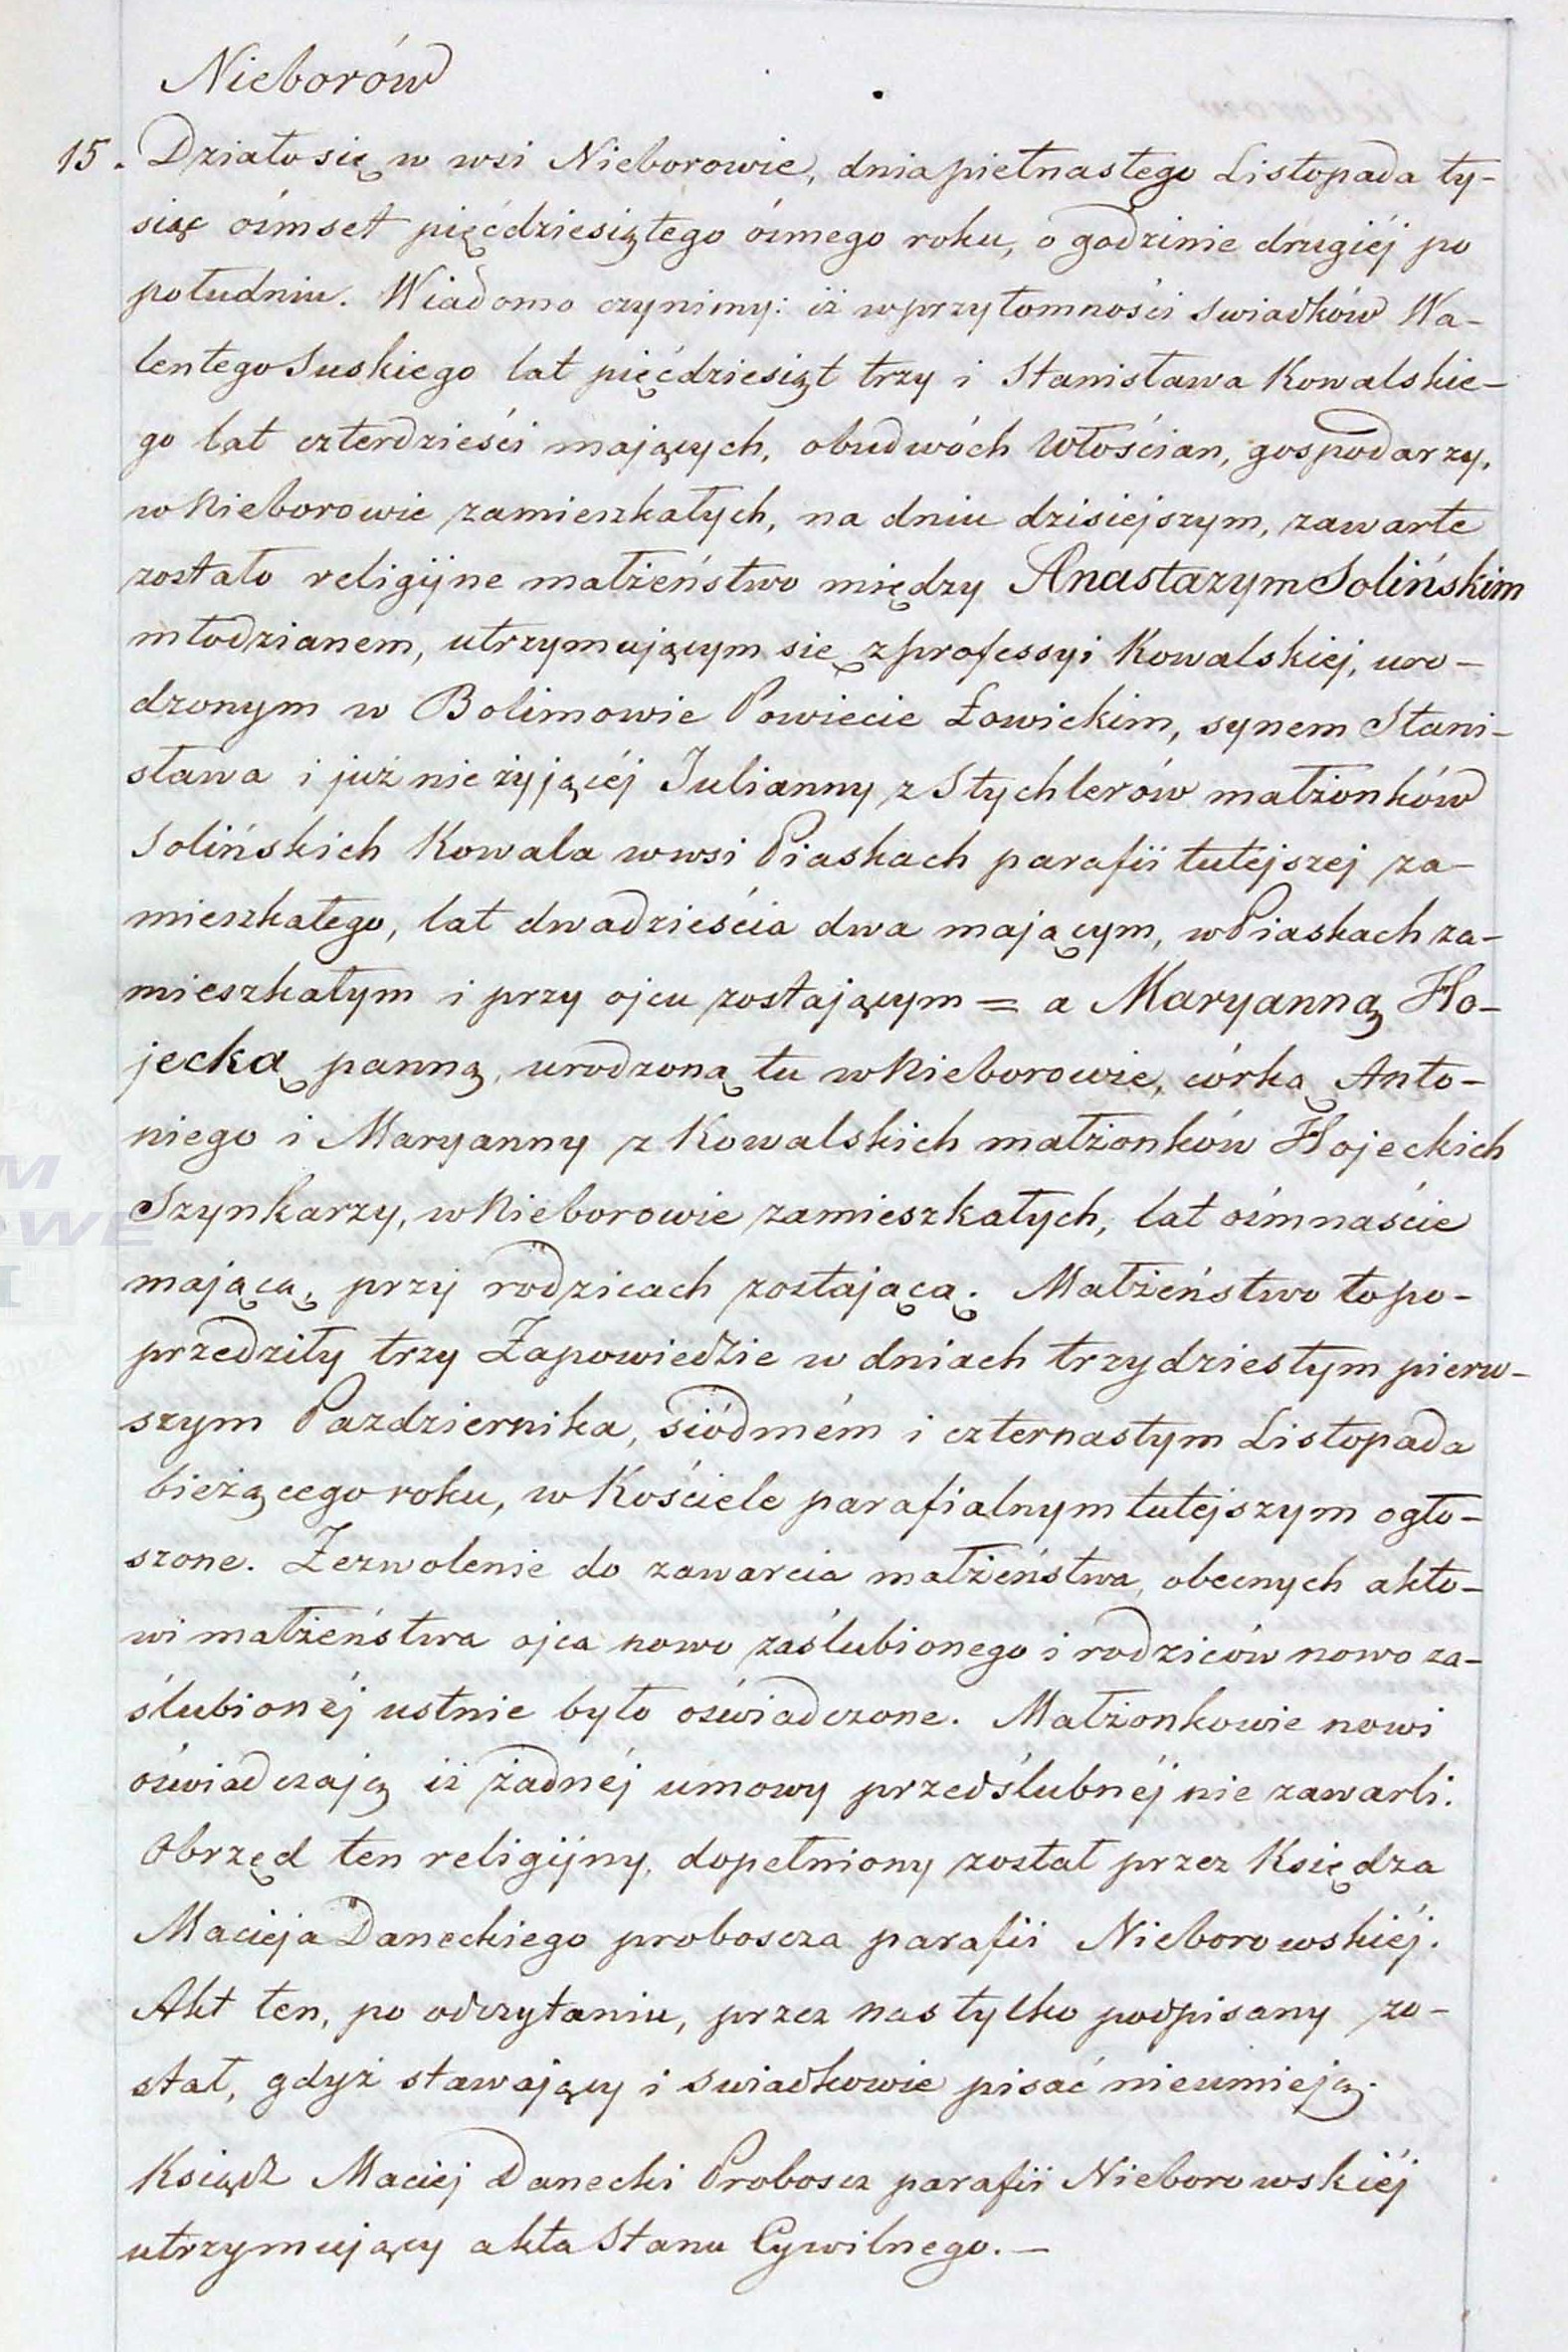 Nieborów
15. Działo się w wsi Nieborowie, dnia piętnastego Listopada ty-
siąc óśmset pięćdziesiątego ósmego roku, o godzinie drugiéj po
południu. Wiadomo czynimy: iż w przytomności swiadków Wa-
lentego Suskiego lat pięćdziesiąt trzy i Stanisława Kowalskie-
go lat czterdzieści mających, obudwóch Włościan, gospodarzy,
w Nieborowie zamieszkałych, na dniu dzisiejszym, zawarte
zostało religijne małżeństwo między Anastazym Solińskim
młodzianem, utrzymującym się z professyi Kowalskiej, uro-
dzonym w Bolimowie Powiecie Łowickim, synem Stani-
sława i już nie żyjącéj Julianny z Stychlerów małżonków
Solińskich Kowala w wsi Piaskach parafii tutejszej za-
mieszkałego, lat dwadzieścia dwa mającym, w Piaskach za-
mieszkałym i przy ojcu zostającym = a Maryanną Ho-
jecką panną, urodzoną tu w Nieborowie, córką Anto-
niego i Maryanny z Kowalskich małżonków Hojeckich
Szynkarzy, w Nieborowie zamieszkałych, lat óśmnaście
mającą, przy rodzicach zostającą. Małżeństwo to po-
przedziły trzy Zapowiedzie w dniach trzydziestym pierw-
szym Pazdziernika, siódmém i czternastym Listopada
bieżącego roku, w Kościele parafialnym tutejszym ogło-
szone. Zezwolenie do zawarcia małżeństwa, obecnych akto-
wi małżeństwa ojca nowo zaślubionego i rodziców nowo za-
ślubionéj ustnie było oświadczone. Małżonkowie nowi
oświadczają iż żadnéj umowy przedślubnéj nie zawarli.
Obrzęd ten religijny, dopełniony został przez Księdza
Macieja Daneckiego proboscza parafii Nieborowskiéj.
Akt ten, po odczytaniu, przez nas tylko podpisany zo-
stał, gdyż stawający i swiadkowie pisać nieumieją.
Ksiądz Maciej Danecki Proboscz parafii Nieborowskiéj
utrzymujący akta Stanu Cywilnego. —